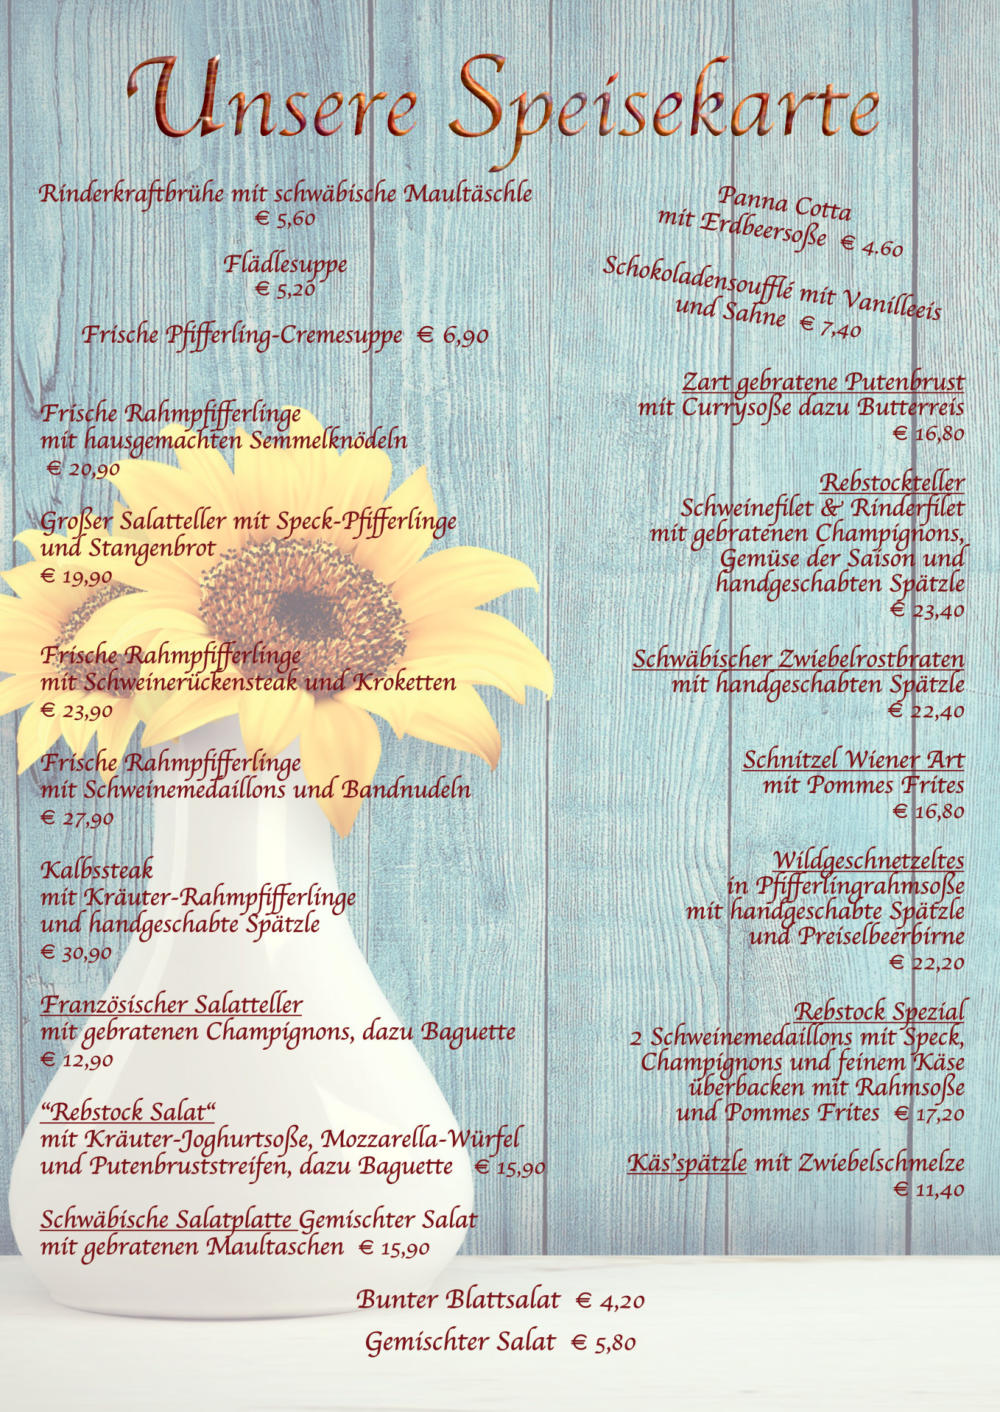 Unsere Speisekarte
Rinderkraftbrühe mit schwäbische Maultäschle
€ 5,60
Flädlesuppe
€ 5,20
Frische Pfifferling-Cremesuppe € 6,90
Frische Rahmpfifferlinge
mit hausgemachten Semmelknödeln
€ 20,90
Großer Salatteller mit Speck-Pfifferlinge
und Stangenbrot
€ 19,90
Frische Rahmpfifferlinge
mit Schweinerückensteak und Kroketten
€ 23,90
Frische Rahmpfifferlinge
mit Schweinemedaillons und Bandnudeln
€ 27,90
Kalbssteak
mit Kräuter-Rahmpfifferlinge
und handgeschabte Spätzle
€ 30,90
Französischer Salatteller
mit gebratenen Champignons, dazu Baguette
€ 12,90
“Rebstock Salat“
mit Kräuter-Joghurtsoße, Mozzarella-Würfel
und Putenbruststreifen, dazu Baguette € 15,90
Schwäbische Salatplatte Gemischter Salat
mit gebratenen Maultaschen € 15,90
Panna Cotta
mit Erdbeersoße € 4.60
Schokoladensoufflé mit Vanilleeis
und Sahne € 7,40
Zart gebratene Putenbrust
mit Currysoße dazu Butterreis
€ 16,80
Rebstockteller
Schweinefilet & Rinderfilet
mit gebratenen Champignons,
Gemüse der Saison und
handgeschabten Spätzle
€ 23,40
Schwäbischer Zwiebelrostbraten
mit handgeschabten Spätzle
€ 22,40
Schnitzel Wiener Art
mit Pommes Frites
€ 16,80
Wildgeschnetzeltes
in Pfifferlingrahmsoße
mit handgeschabte Spätzle
und Preiselbeerbirne
€ 22,20
Rebstock Spezial
2 Schweinemedaillons mit Speck,
Champignons und feinem Käse
überbacken mit Rahmsoße
und Pommes Frites € 17,20
Käs'spätzle mit Zwiebelschmelze
€ 11,40
Bunter Blattsalat € 4,20
Gemischter Salat € 5,80